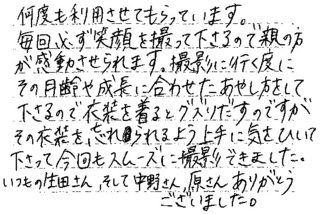 何度も利用させてもらっています。
毎回必ず笑顔を撮って下さるので親の方
が感動させられます。撮影に行く度に
その月齢や成長に合わせたあやし方をして
下さるので衣装を着るとグズりだすのですが
その衣装を忘れられるよう上手に気をひいて
下さって今回もスムーズに撮影できました。
いつもの生田さん、そして中野さん、原さん、ありがとう
ございました。